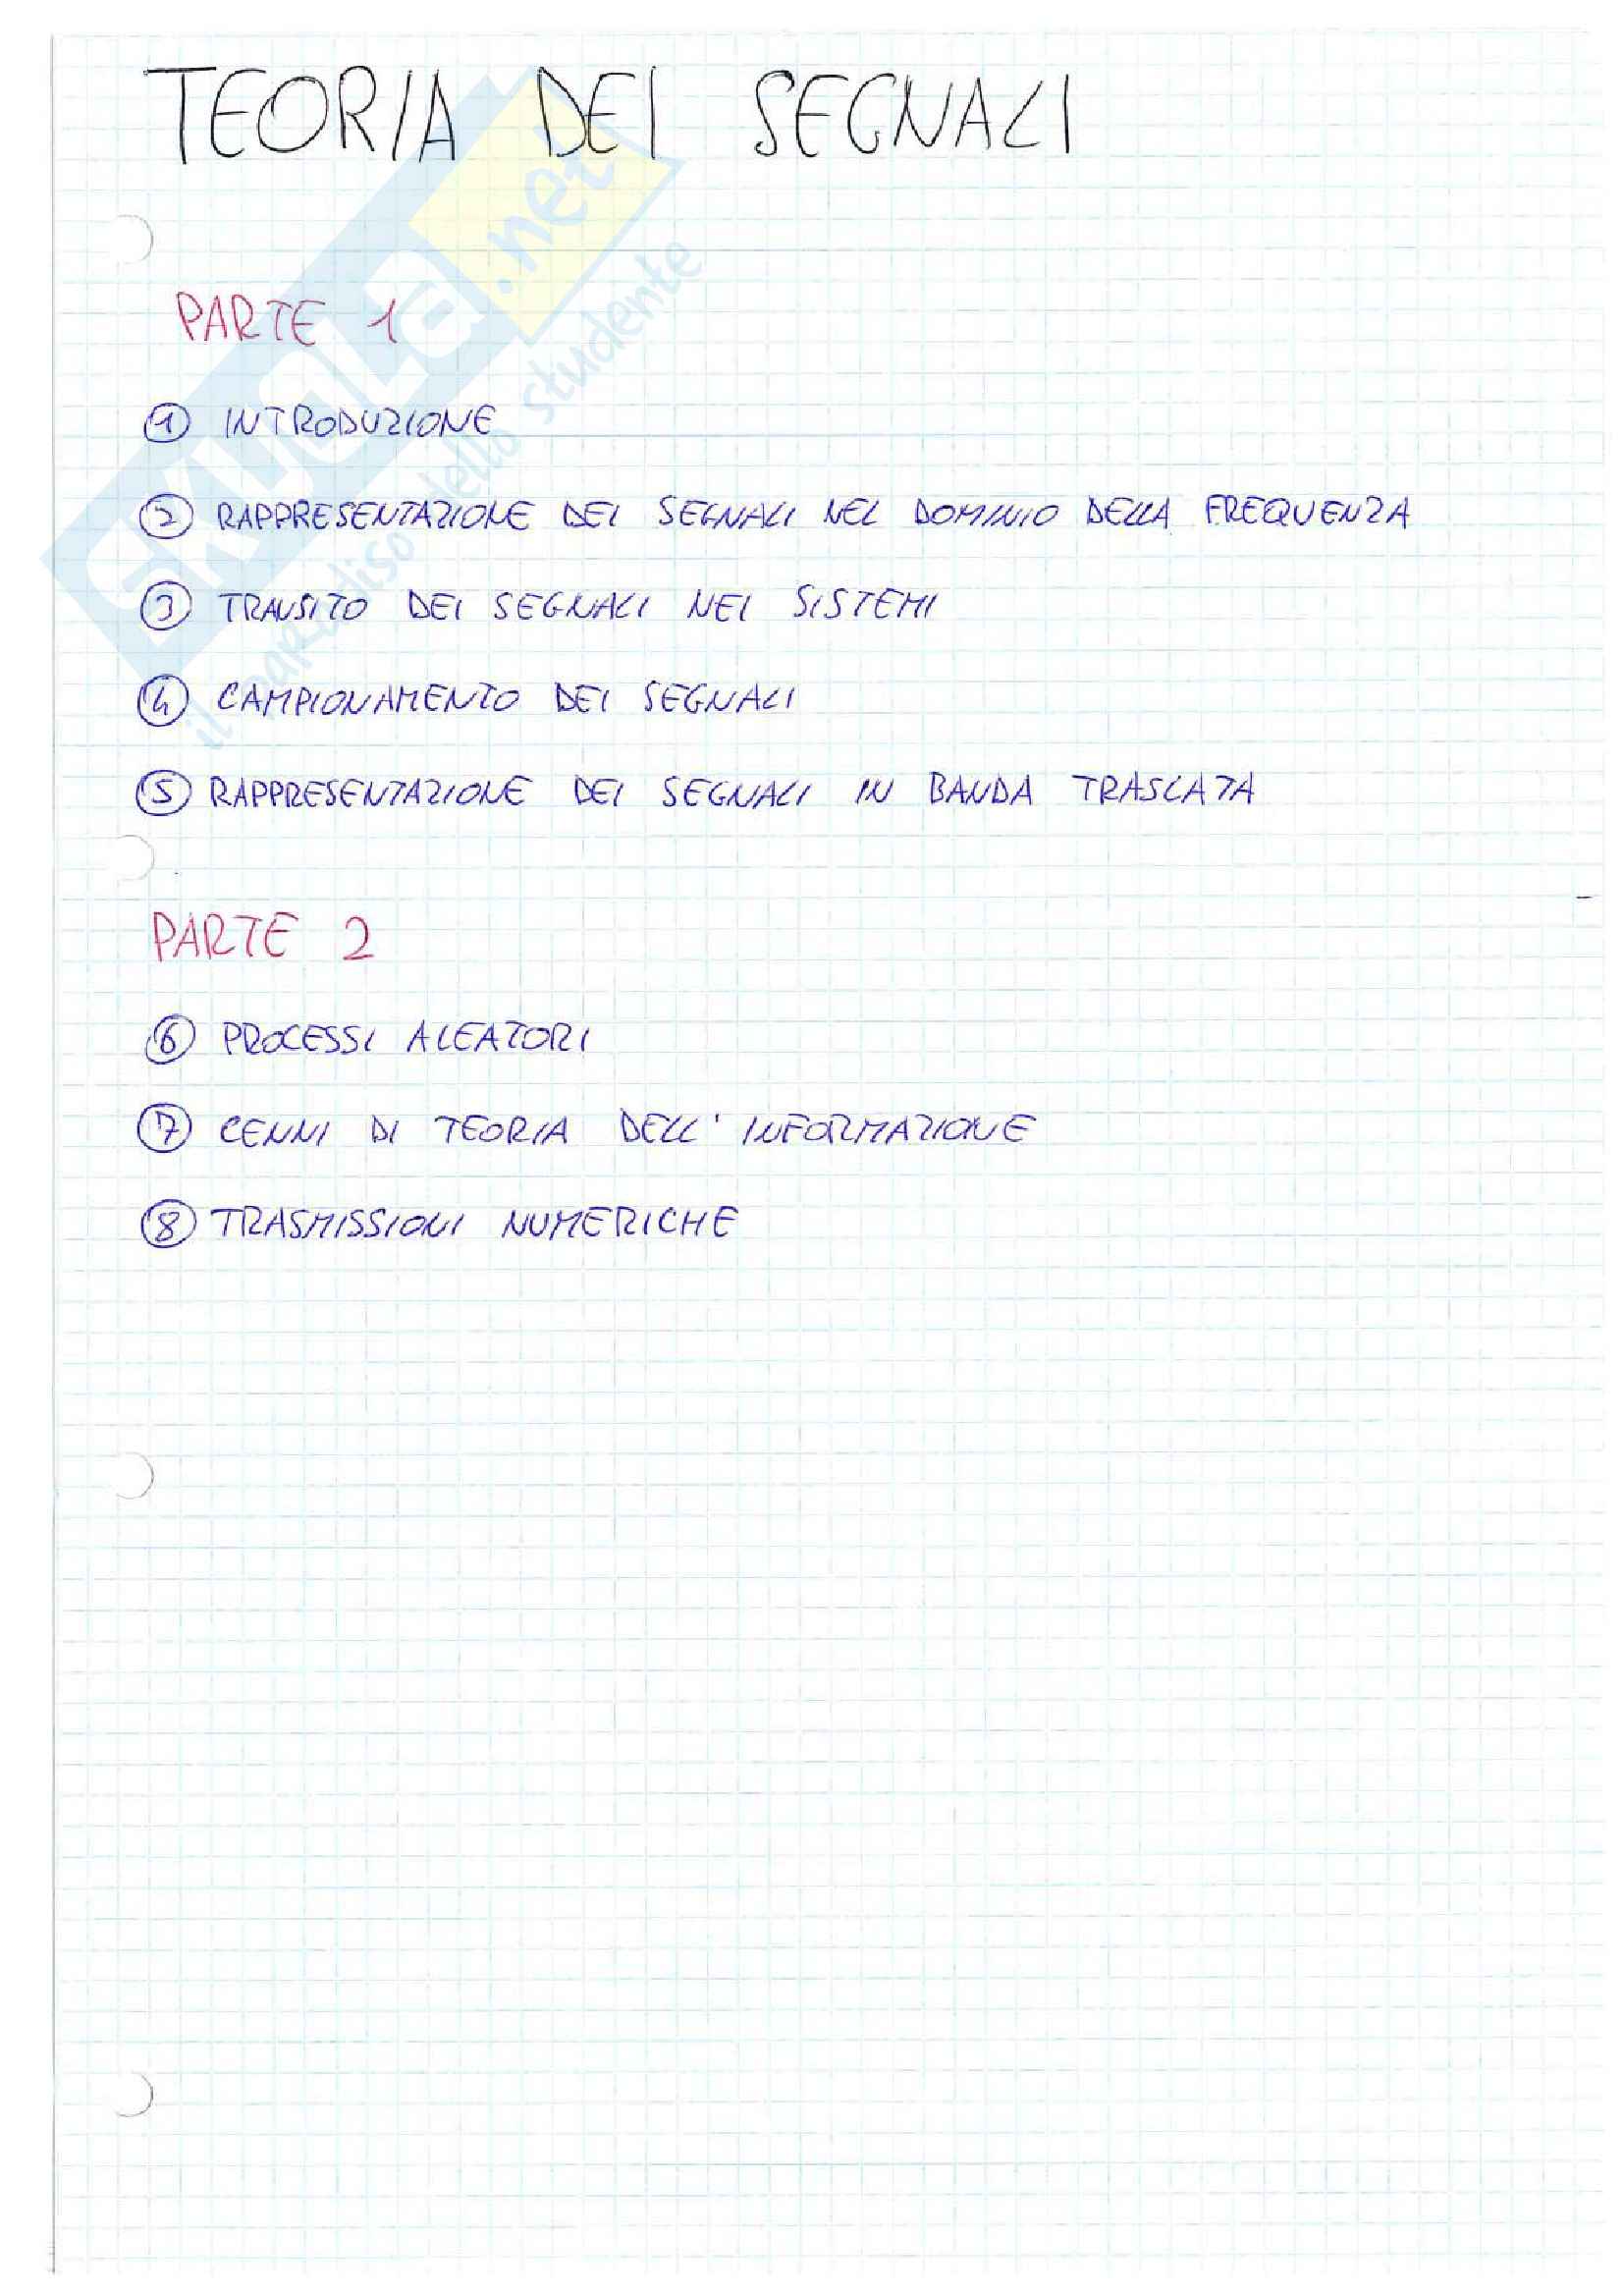 TEORIA DEI SEGNALI
PARTE 1
1 INTRODUZIONE
2 RAPPRESENTAZIONE DEI SEGNALI NEL DOMINIO DELLA FREQUENZA
3 TRANSITO DEI SEGNALI NEI SISTEMI
4 CAMPIONAMENTO DEI SEGNALI
5 RAPPRESENTAZIONE DEI SEGNALI IN BANDA TRASLATA
PARTE 2
6 PROCESSI ALEATORI
7 CENNI DI TEORIA DELL'INFORMAZIONE
8 TRASMISSIONI NUMERICHE
SKUOLA.net
il paradiso dello studente